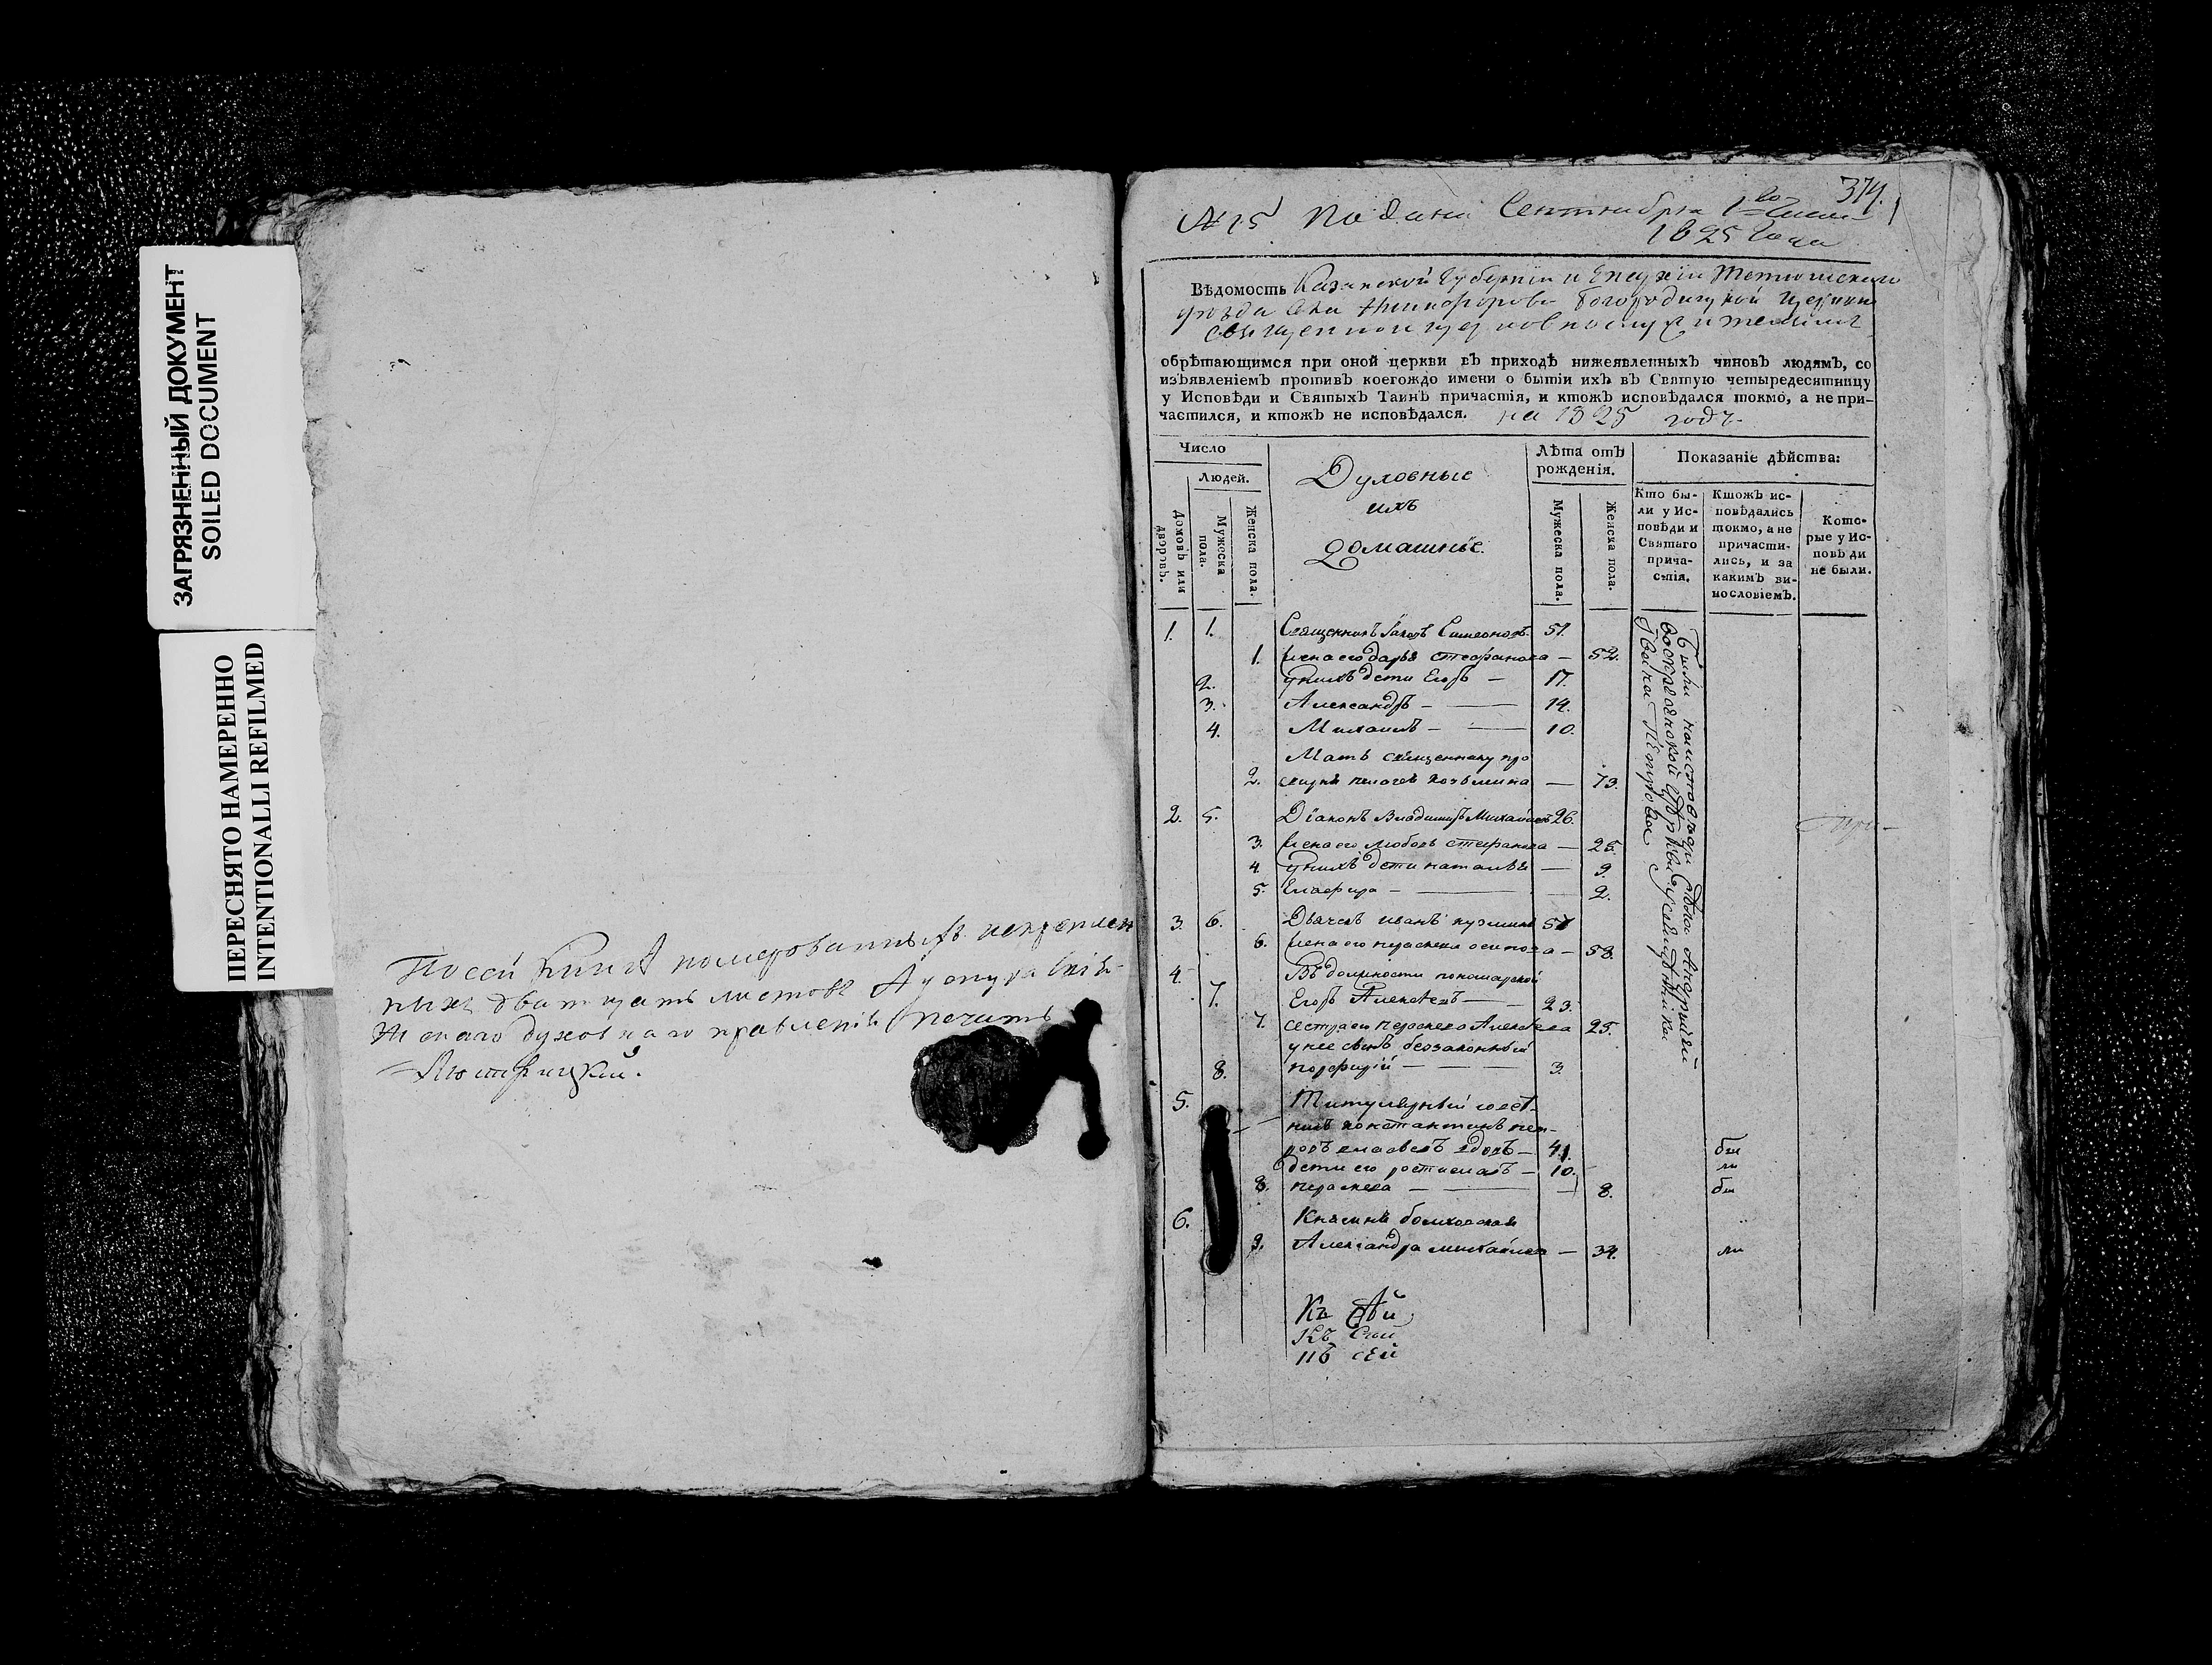 ЗАГРЯЗНЕННЫЙ ДОКУМЕНТ
SOILED DOCUMENT
ПЕРЕСНЯТО НАМЕРЕННО
INTENTIONALLI REFILMED
По сей книге номерованныхъ
ныхъ дватцать листовъ
духовнаго правленія печать
374.
№ 15 Подана Сентября 1го числа
1825 Года
Вѣдомость Казанской Губерніи и Епархіи Тетюшскаго
уѣзда Села Никифорова Богородицкой церкви
священноцерковнослужителями
обрѣтающимся при оной церкви въ приходѣ нижеявленныхъ чиновъ людямъ, со
изъявленіемъ противъ коегождо имени о бытіи ихъ въ Святую четыредесятницу
у Исповѣди и Святыхъ Таинъ причастія, и ктожъ исповѣдался токмо, а не при-
частился, и ктожъ не исповѣдался. на 1825 годъ
Число
Людей.
Домовъ или дворовъ.
Мужеска пола.
Женска пола.
Духовные
ихъ
домашніе.
Лѣта отъ рожденія.
Мужеска пола.
Женска пола.
Показаніе дѣйства:
Кто бы-
ли у Ис-
повѣди и
Святаго
прича-
стія.
Ктожъ ис-
повѣдались
токмо, а не
причасти-
лись, и за
какимъ ви-
нословіемъ.
Кото-
рые у Ис-
повѣди
не были.
1. 1. Священникъ Іаковъ Симеоновъ 51.
1. Жена его Дарья Стефанова — 52.
2. У нихъ дети Егоръ — 17.
3. Александръ — 14.
4. Михаилъ — 10.
Мать священнику про
2. Козьмина — 73.
2. 5. Діаконъ Владимиръ Михайловъ 26.
3. Жена его Любовь Стефанова — 25.
4. У нихъ дети Наталья — 9.
5. — 2.
3. 6. Дьячекъ Иванъ Кузминъ 51
6. Жена его Праскева Осипова — 58.
4. Въ должности пономарской
7. Егоръ Алексѣевъ — 23.
7. Сестра ея Праскева Алексѣева 25.
у нее сынъ беззаконный
8. Порфирій — 3.
5. Титулярный совѣт-
никъ Константинъ Пет-
ровъ вдовъ — 41.
дети его Ростиславъ — 10.
8. Праскева — 8.
6. Княгиня Болховская
9. Александра Михайлова — 34.
Были на исповѣди
Воскресенской Церкви у Священника
Іоанна Петрова
бы
ли
бы
ли
при
Къ сей
Къ сей
сей